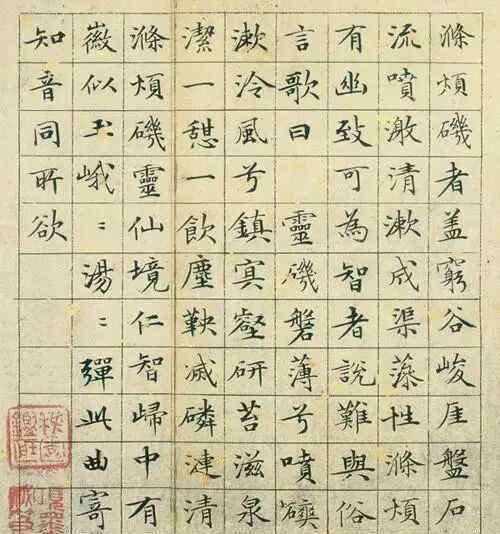 滌煩磯者盖窮谷峻厓盤石
流噴激清漱成渠藻性滌煩
有幽致可為智者說難與俗
言歌曰 靈磯磐薄兮噴
漱泠風兮鎮冥壑研苔滋泉
潔一憇一飲塵鞅滅磷漣清
滌煩磯靈仙境仁智歸中有
徽似玉峨〻湯〻彈此曲寄
知音同所欲